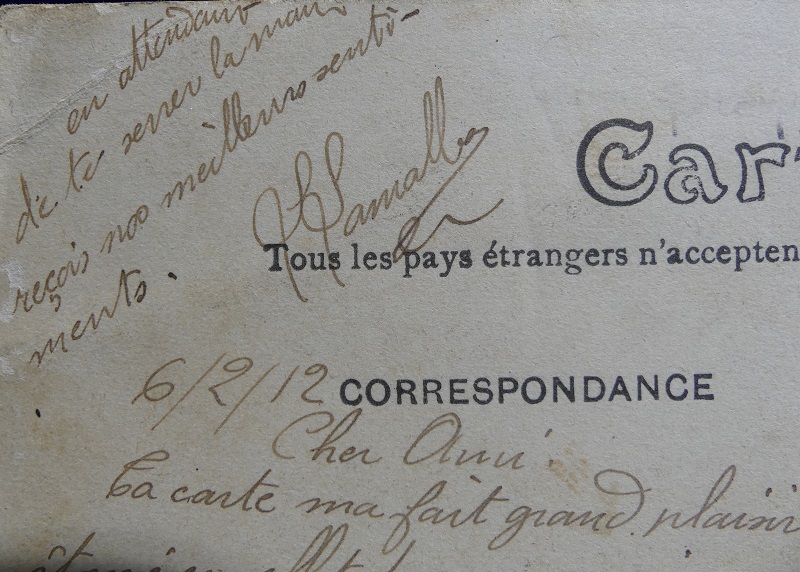 en attendant
de te serrer la main
reçois nos meilleurs senti-
ments.
Car
Tous les pays étrangers n'accepten
6/2/12 CORRESPONDANCE
Cher Ami.
Ta carte ma fait grand plaisir